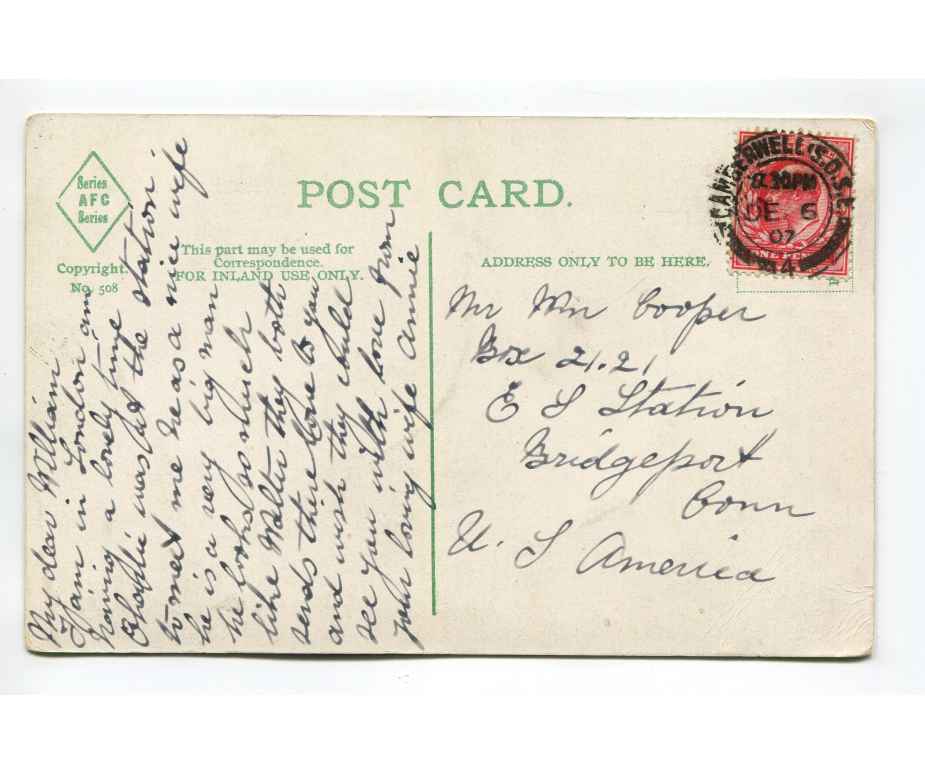 Series
AFC
Series
Copyright.
No. 508
POST CARD.
This part may be used for
Correspondence.
FOR INLAND USE ONLY.
ADDRESS ONLY TO BE HERE.
CAMBERWELL S.O. S.E.
30PM
DE 6
07
My dear William
I am in London am
having a lonely time
was at the station
to meet me he as a nice wife
he is a very big man
he looks as much
like Walter they both
sends there love to you
and wish they could
see you with love from
your loving wife Annie
Mr Wm Cooper
Box 21.21
E S Station
Bridgeport
Conn
U. S America